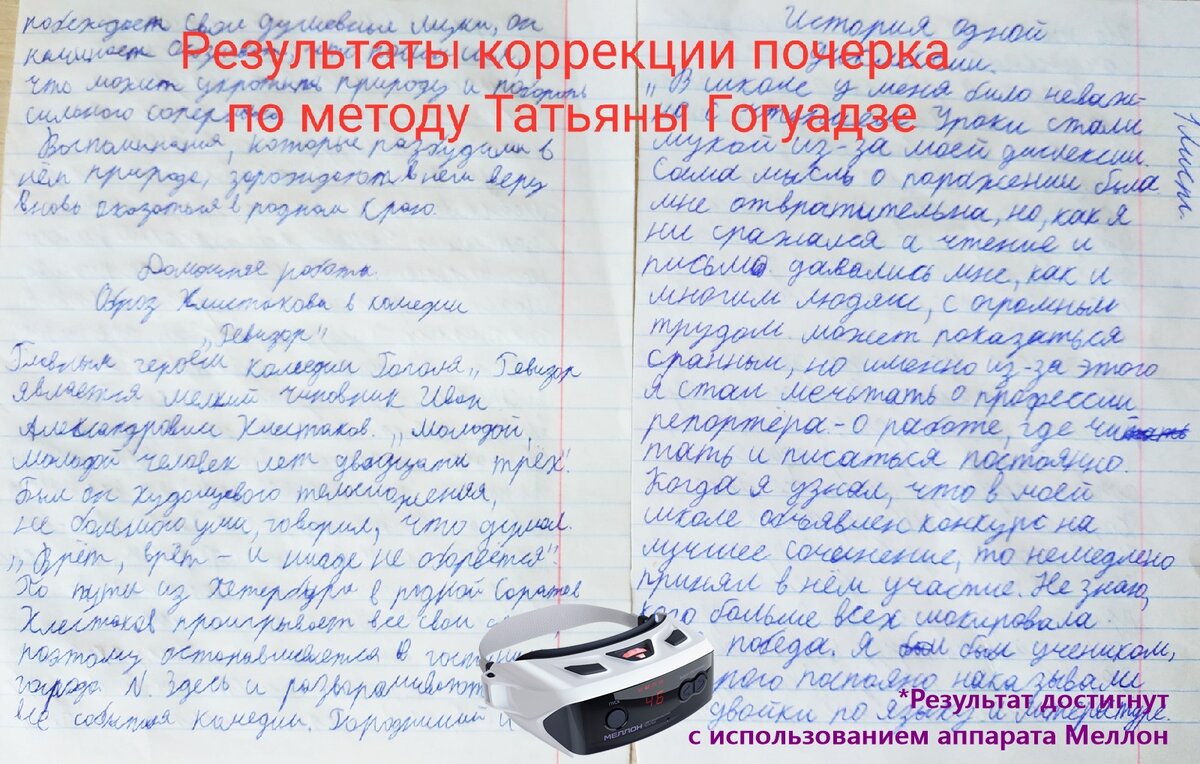 Результаты коррекции почерка
по методу Татьяны Гогуадзе
побеждает свои душевные муки, он
начинает
что может укротить природу и побороть
сильного
Воспоминания, которые разбудили в
нём природе, зарождают в ней веру
вновь оказаться в родном краю.
Домашняя работа
Образ Хлестакова в комедии
„Ревизор"
Главным героем комедии Гоголя „Ревизор
является мелкий чиновник Иван
Александрович Хлестаков. „Молодой,
молодой человек лет двадцати трёх!
Был он худощавого телосложения,
не большого ума, говорил, что думал.
„Врёт, врёт – и нигде не оборвётся"
По пути из Петербурга в родной Саратов
Хлестаков проигрывает все свои
поэтому останавливается в
города N. Здесь и разворачиваются
все события комедии. Городничий и
История одной
„В школе у меня было неваж-
но с чтением. Уроки стали
мукой из-за моей дислексии.
Сама мысль о поражении была
мне отвратительна, но, как я
ни сражался а чтение и
письмо давались мне, как и
многим людям, с огромным
трудом. может показаться
сранным, но именно из-за этого
я стал мечьтать о профессии
репортёра. - О работе, где чи
тать и писаться постоянно.
Когда я узнал, что в моей
школе объявлен конкурс на
лучшее сочинение, то немедлено
принял в нём участие. Не знаю,
кого больше всех шокировала
победа. Я был учеником,
рого постояно наказывали
двойки по языку и литературе.
1 лист.
ПУСК
46
МЕЛЛОН
*Результат достигнут
с использованием аппарата Меллон